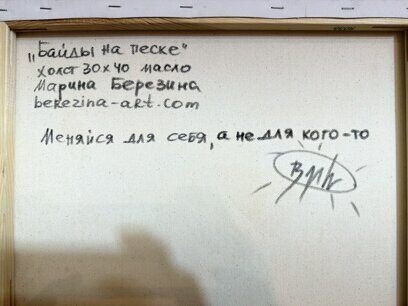 „Байды на песке"
холст 30х40 масло
Марина Березина
berezina-art.com
Меняйся для себя, а не для кого-то